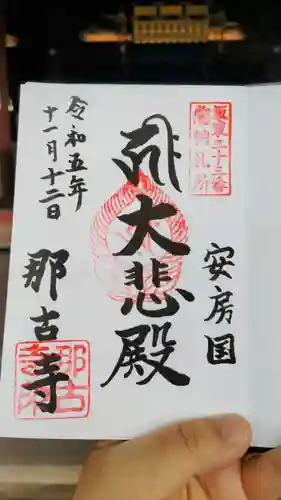 坂東三十三番
納札所
安房国
大悲殿
令和五年
十一月十二日
那古寺
那古
寺印